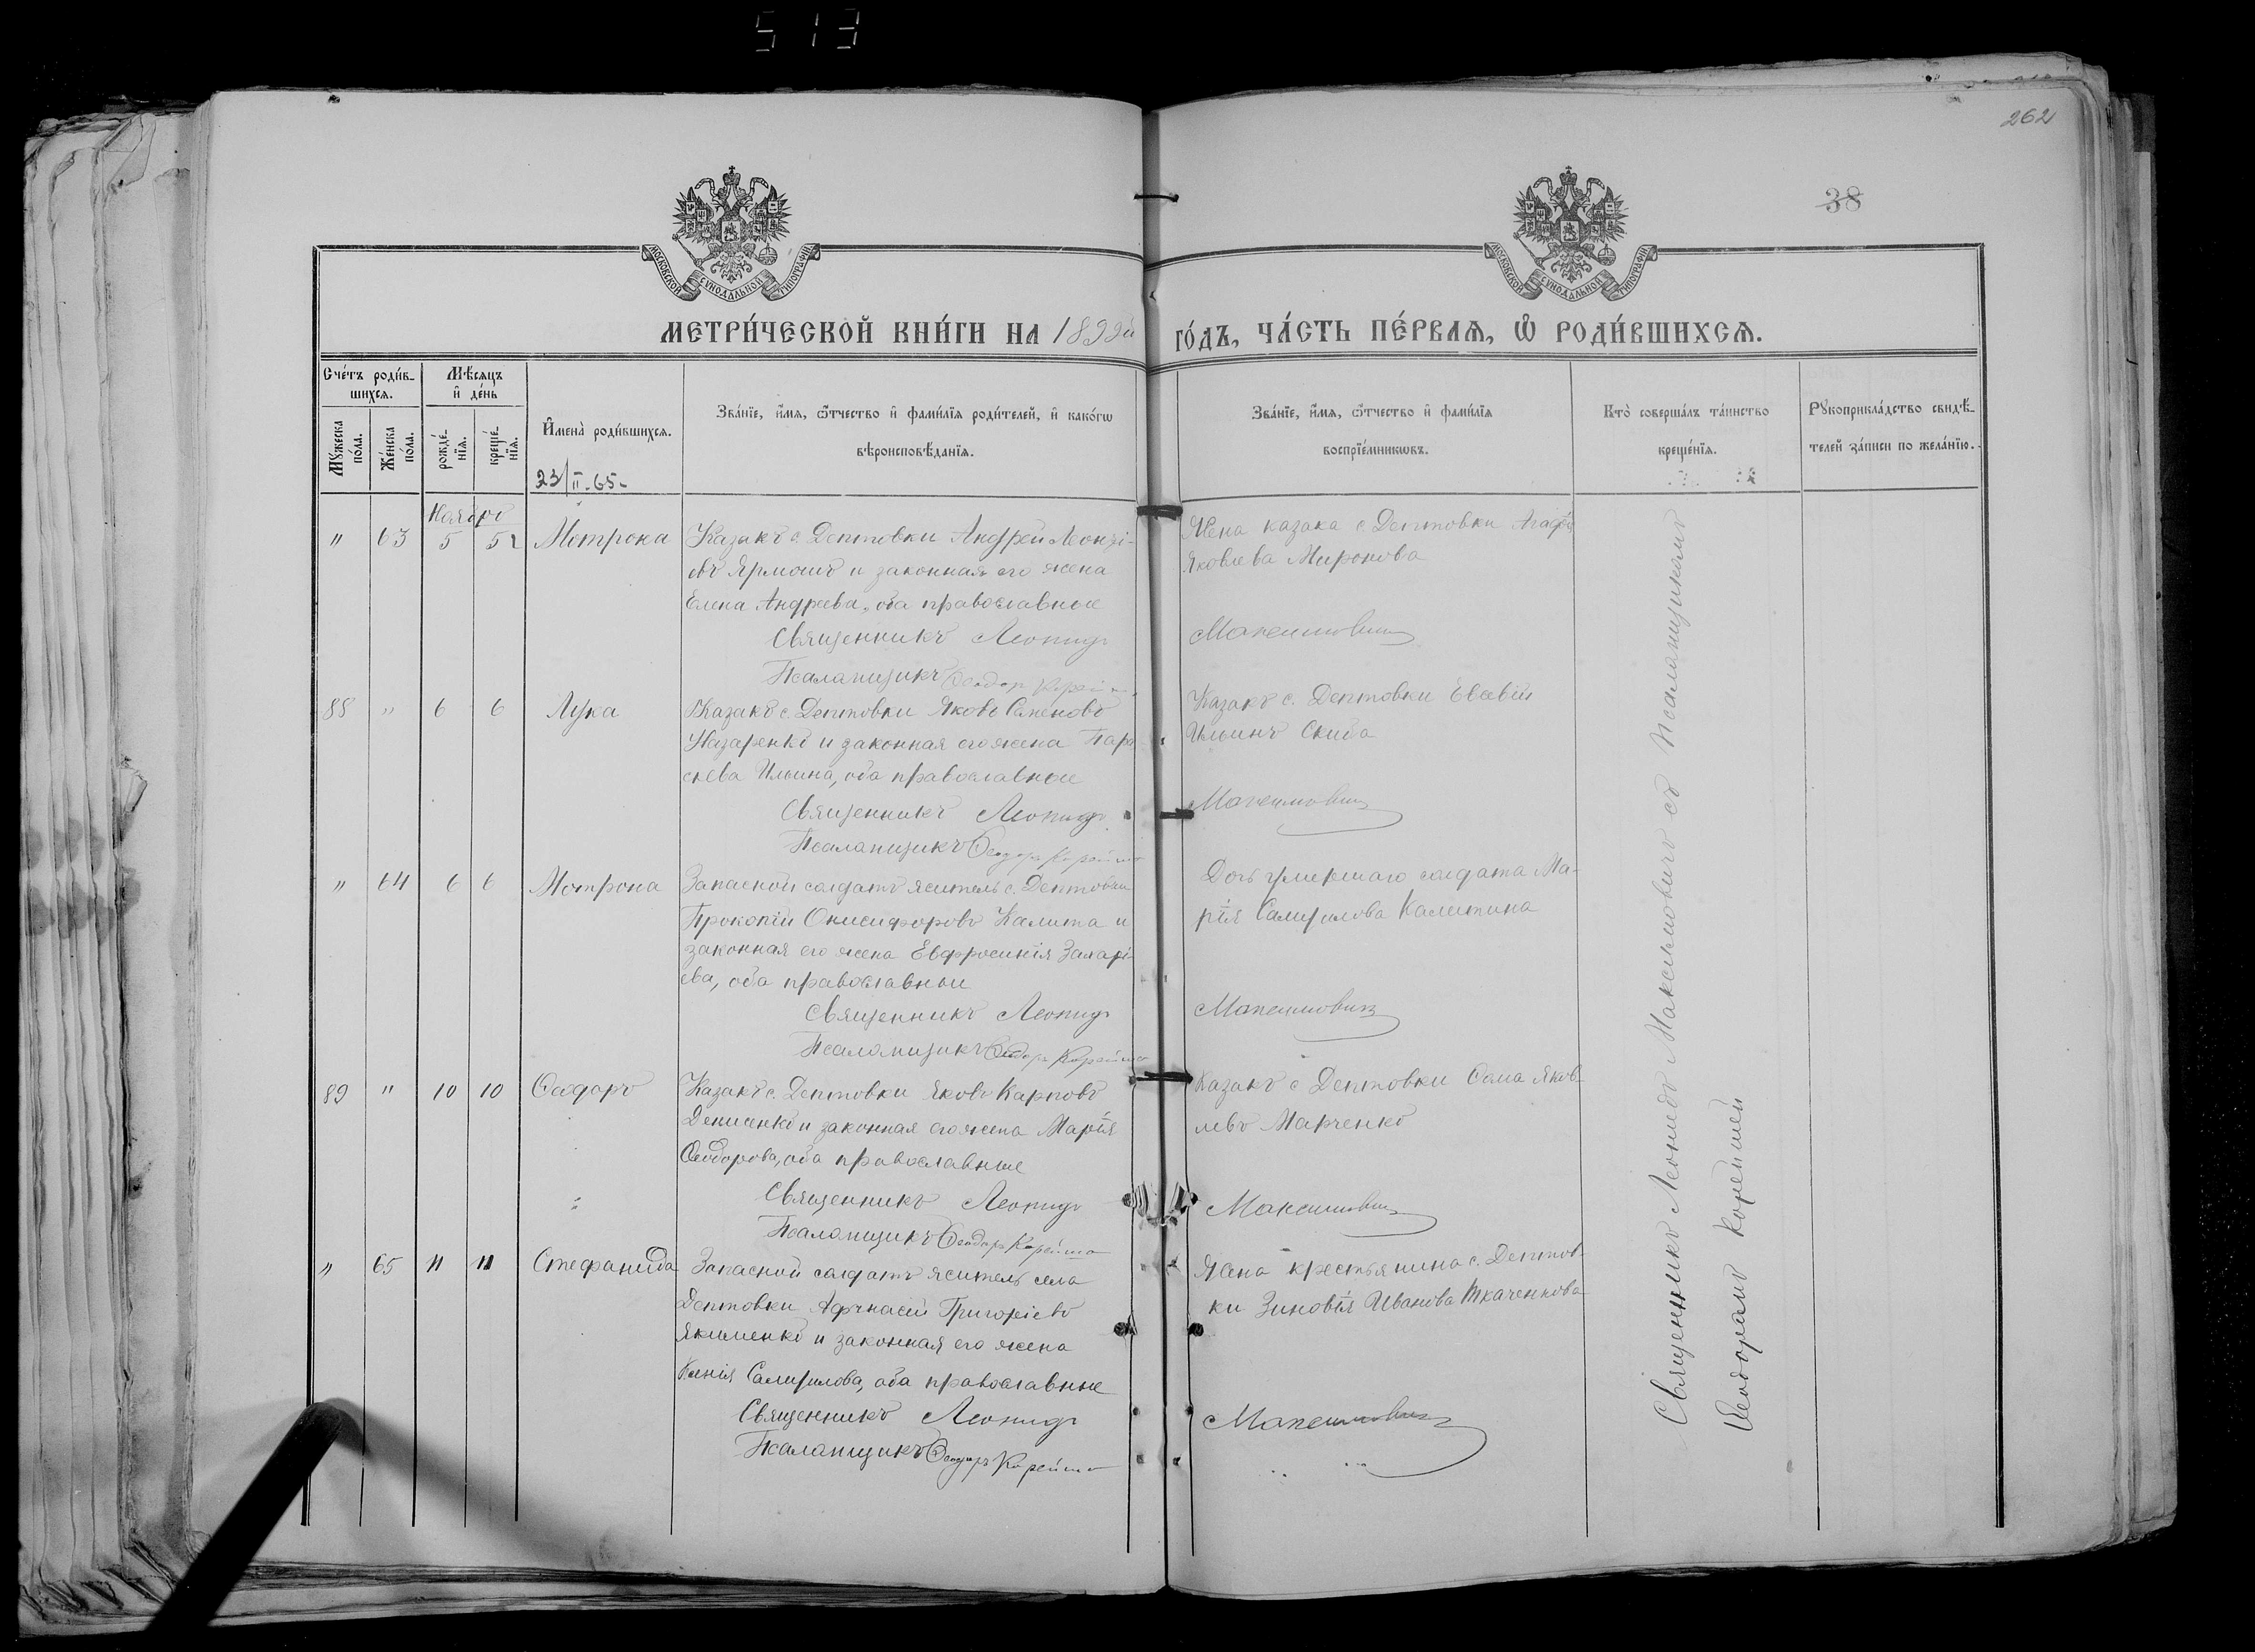 513
262
38
МОСКОВСКОЙ СУНОДАЛЬНОЙ ТИПОГРАФІИ
МОСКОВСКОЙ СУНОДАЛЬНОЙ ТИПОГРАФІИ
МЕТРИ́ЧЕСКОЙ КНИ́ГИ НА 1899й ГО́ДЪ, ЧА́СТЬ ПЕ́РВАЯ, Ѡ РОДИ́ВШИХСЯ.
Сче́тъ роди́в-
шихся.
Мѣ́сяцъ
и҆ де́нь
Му́жеска
по́ла.
Же́нска
по́ла.
рожде́-
нїя.
креще́-
нїя.
И҆мена̀ роди́вшихся.
23/II-65-
Зва́нїе, и҆́мя, ѻ҆́тчество и҆ фами́лїя роди́телей, и҆ како́гѡ
вѣроисповѣ́данїя.
Зва́нїе, и҆́мя, ѻ҆́тчество и҆ фами́лїя
воспрїе́мникѡвъ.
Кто̀ соверша́лъ та́инство
креще́нїя.
Рꙋкоприкла́дство свидѣ́-
телей за́писи по жела́нїю.
Ноябрь
" 63 5 5 Мотрона
Казакъ с. Дептовки Андрей Леонті-
евъ Ярмошъ и законная его жена
Елена Андреева, оба православные
Священникъ Леонидъ Максимовичъ
Псаломщикъ Ѳеодоръ Корейша
Жена казака с Дептовки Агафія
Яковлева Миронова
88 " 6 6 Лука
Казакъ с. Дептовки Яковъ Семеновъ
Назаренко и законная его жена Пара
скева Ильина, оба православные
Священникъ Леонидъ Максимовичъ
Псаломщикъ Ѳеодоръ Корейша
Казакъ с. Дептовки Евсевій
Ильинъ Скиба
" 64 6 6 Мотрона
Запасной солдатъ житель с. Дептовки
Прокопій Онисифоровъ Калита и
законная его жена Евфросинія Захарі
ева, оба православные
Священникъ Леонидъ Максимовичъ
Псаломщикъ Ѳеодоръ Корейша
Дочь умершаго солдата Ма-
рія Самуилова Калитина
89 " 10 10 Ѳеодоръ
Казакъ с. Дептовки Яковъ Карповъ
Денисенко и законная его жена Марія
Ѳеодорова, оба православные
Священникъ Леонидъ Максимовичъ
Псаломщикъ Ѳеодоръ Корейша
Казакъ с Дептовки Сама Яков-
левъ Марченко
" 65 11 11 Стефанида
Запасной солдатъ житель села
Дептовки Афанасій Григоріевъ
Якименко и законная его жена
Ксенія Самуилова, оба православные
Священникъ Леонидъ Максимовичъ
Псаломщикъ Ѳеодоръ Корейша
Жена крестьянина с. Дептов-
ки Зиновія Иванова Ткаченкова
Священникъ Леонидъ Максимовичъ съ Псаломщикомъ
Ѳеодоромъ Корейшей